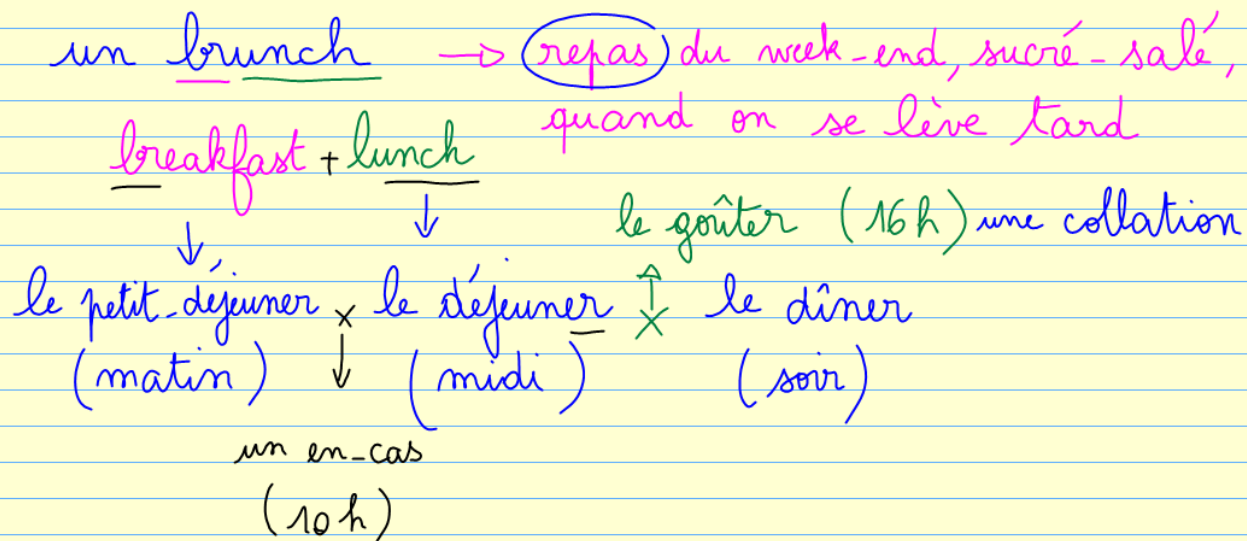 un brunch → repas du week-end, sucré-salé,
quand on se lève tard
breakfast + lunch
le goûter (16h) une collation
le petit-déjeuner x le déjeuner x le dîner
(matin) (midi) (soir)
un en-cas
(10h)